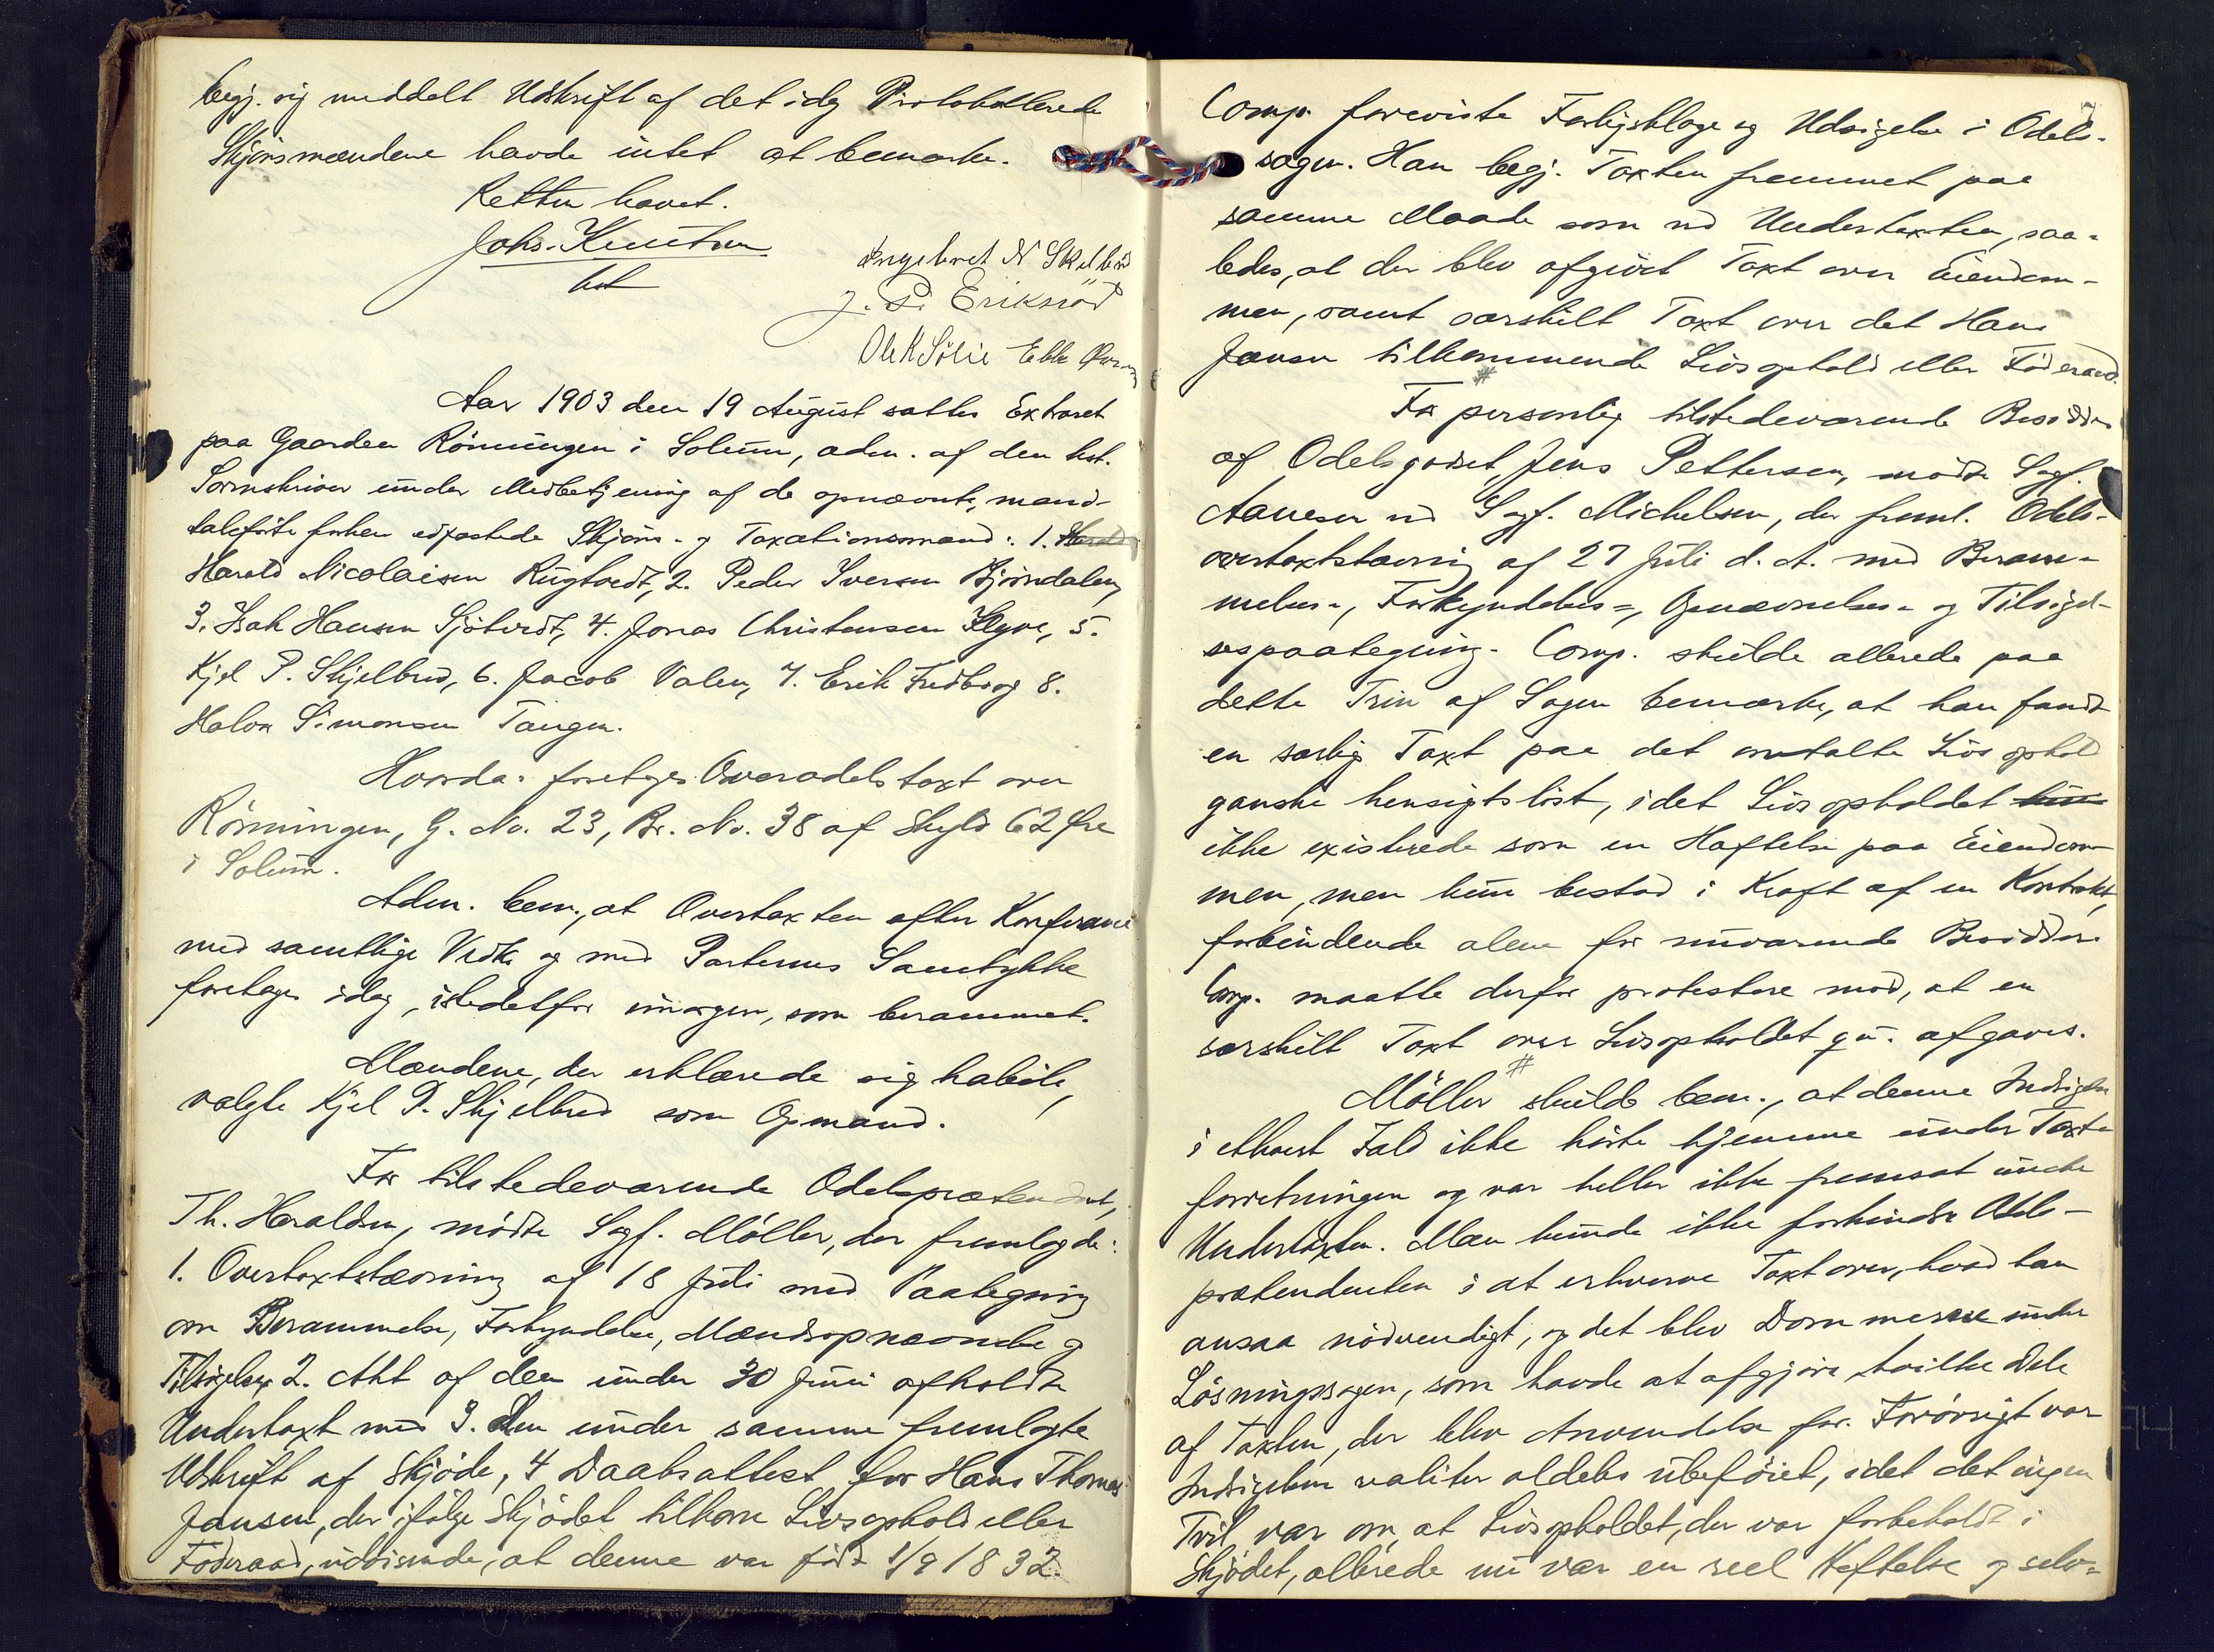 begj. sig meddelt Udskrift af det idag Protokollerede
Skjønsmændene havde intet at bemærke.
Retten hævet.
Johs. Knutsen
kst
Ingebret N Skilbred
J. P. Eriksröd
Ole K Sölie Ebbe
Aar 1903 den 19 August sattes Extraret
paa Gaarden Rönningen i Solum, adm. af den kst.
Sorenskriver under Medbetjening af de opnævnte, mand-
talførte forhen edfæstede Skjöns- og Taxationsmænd: 1.
Harald Nicolaisen Rugtvedt, 2. Peder Iversen Bjørndalen,
3. Isak Hansen Sjötvedt, 4. Jonas Christensen Klyve, 5.
Kjel P. Skjelbred, 6. Jacob Valen, 7. Erik Fredbo og 8.
Halvor Simonsen Tangen.
Hvorda: foretoges Overodelstaxt over
Rönningen, G. No. 23, Br. No. 38 af Skyld 62 Øre
i Solum.
Adm. bem., at Overtaxten efter Konferance
med samtlige Vedk. og med Parternes Samtykke
foretages idag, istedetfor imorgen, som berammet.
Mændene, der erklærede sig habile,
valgte Kjel P. Skjelbred som Opmand.
For tilstedeværende Odelsprætendent,
Th. Haraldsen, mödte Sagf. Möller, der fremlagde:
1. Overtaxtstævning af 18 Juli med Paategning
om Berammelse, Forkyndelse, Mændsopnævnelse og
Tilsigelse 2. Akt af den under 30 Juni afholdte
Undertaxt med 3. Den under samme fremlagte
Udskrift af Skjöde, 4 Daabsattest for Hans Thomas
Jansen, der ifølge Skjödet tilkom Livsophold eller
Föderaad, udvisende, at denne var född 1/9 1832.
7
Comp. foreviste Forligsklage og Udsigelse i Odels-
sagen. Han begj. Taxten fremmet paa
samme Maade som ved Undertaxten, saa-
ledes, at der blev afgivet Taxt over Eiendom-
men, samt særskilt Taxt over det Hans
Jansen tilkommende Livsophold eller Föderaad.
#
For personlig tilstedeværende Besidder
af Odelsgodset, Jens Pettersen, mödte Sagf.
Aanesen ved Sagf. Michelsen, der freml. Odels-
overtaxtstævning af 27 Juli d. A. med Beram-
melses-, Forkyndelses-, Opnævnelses- og Tilsigel-
sespaategning. Comp. skulde allerede paa
dette Trin af Sagen bemærke, at han fandt
en særlig Taxt paa det omtalte Livsophold
ganske hensigtslöst, idet Livsopholdet
ikke existerede som en Hæftelse paa Eiendom-
men, men kun bestod i Kraft af en Kontrakt,
forbindende alene for nuværende Besidder.
Comp. maatte derfor protestere mod, at en
særskilt Taxt over Livsopholdet qu. afgaves.
#
Möller skulde bem., at denne Indsigelse
i ethvert Fald ikke hörte hjemme under Taxt-
forretningen og var heller ikke fremsat under
Undertaxten. Man kunde ikke forhindre Odels-
prætendenten i at erhverve Taxt over, hvad han
ansaa nödvendigt, og det blev Dommeren under
Lösningssagen, som havde at afgjøre, hvilke Dele
af Taxten, der blev Anvendelse for. Forövrigt var
Indsigelsen realiter aldeles ubeföiet, idet det ingen
Tvil var om, at Livsopholdet, der var forbeholdt i
Skjödet, allerede nu var en reel Heftelse og selv-